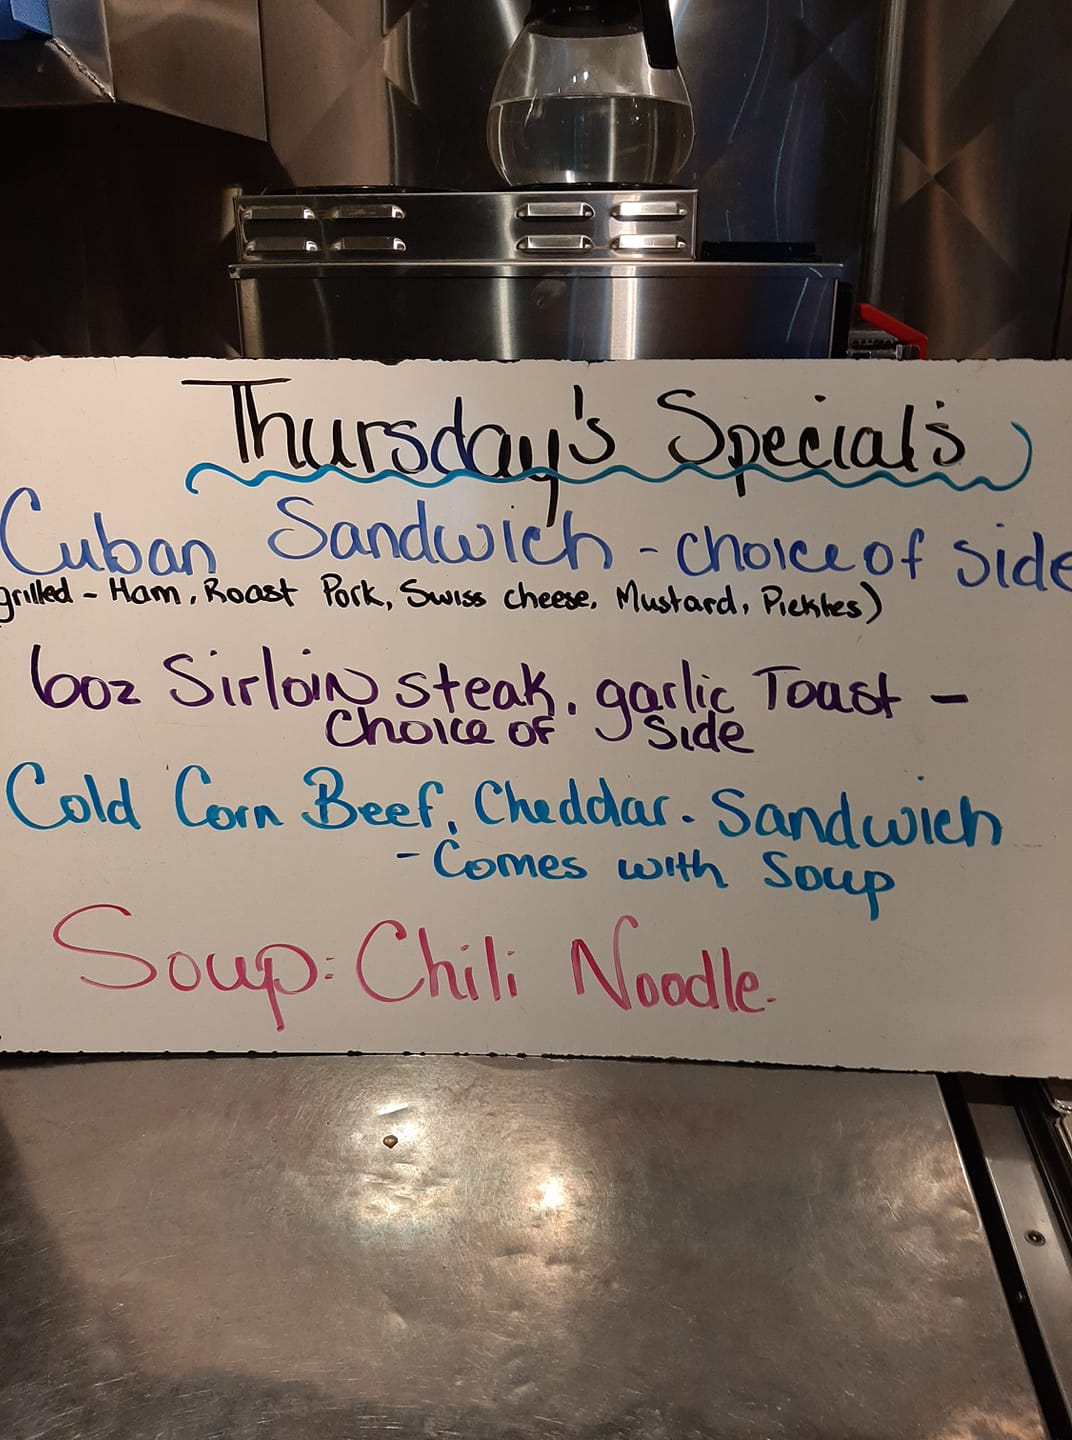 Thursday's Special's
Cuban Sandwich - choice of side
grilled - Ham, Roast Pork, Swiss cheese, Mustard, Pickles)
6oz Sirloin steak, garlic Toast -
choice of side
Cold Corn Beef, Cheddar. Sandwich
- Comes with Soup
Soup: Chili Noodle.